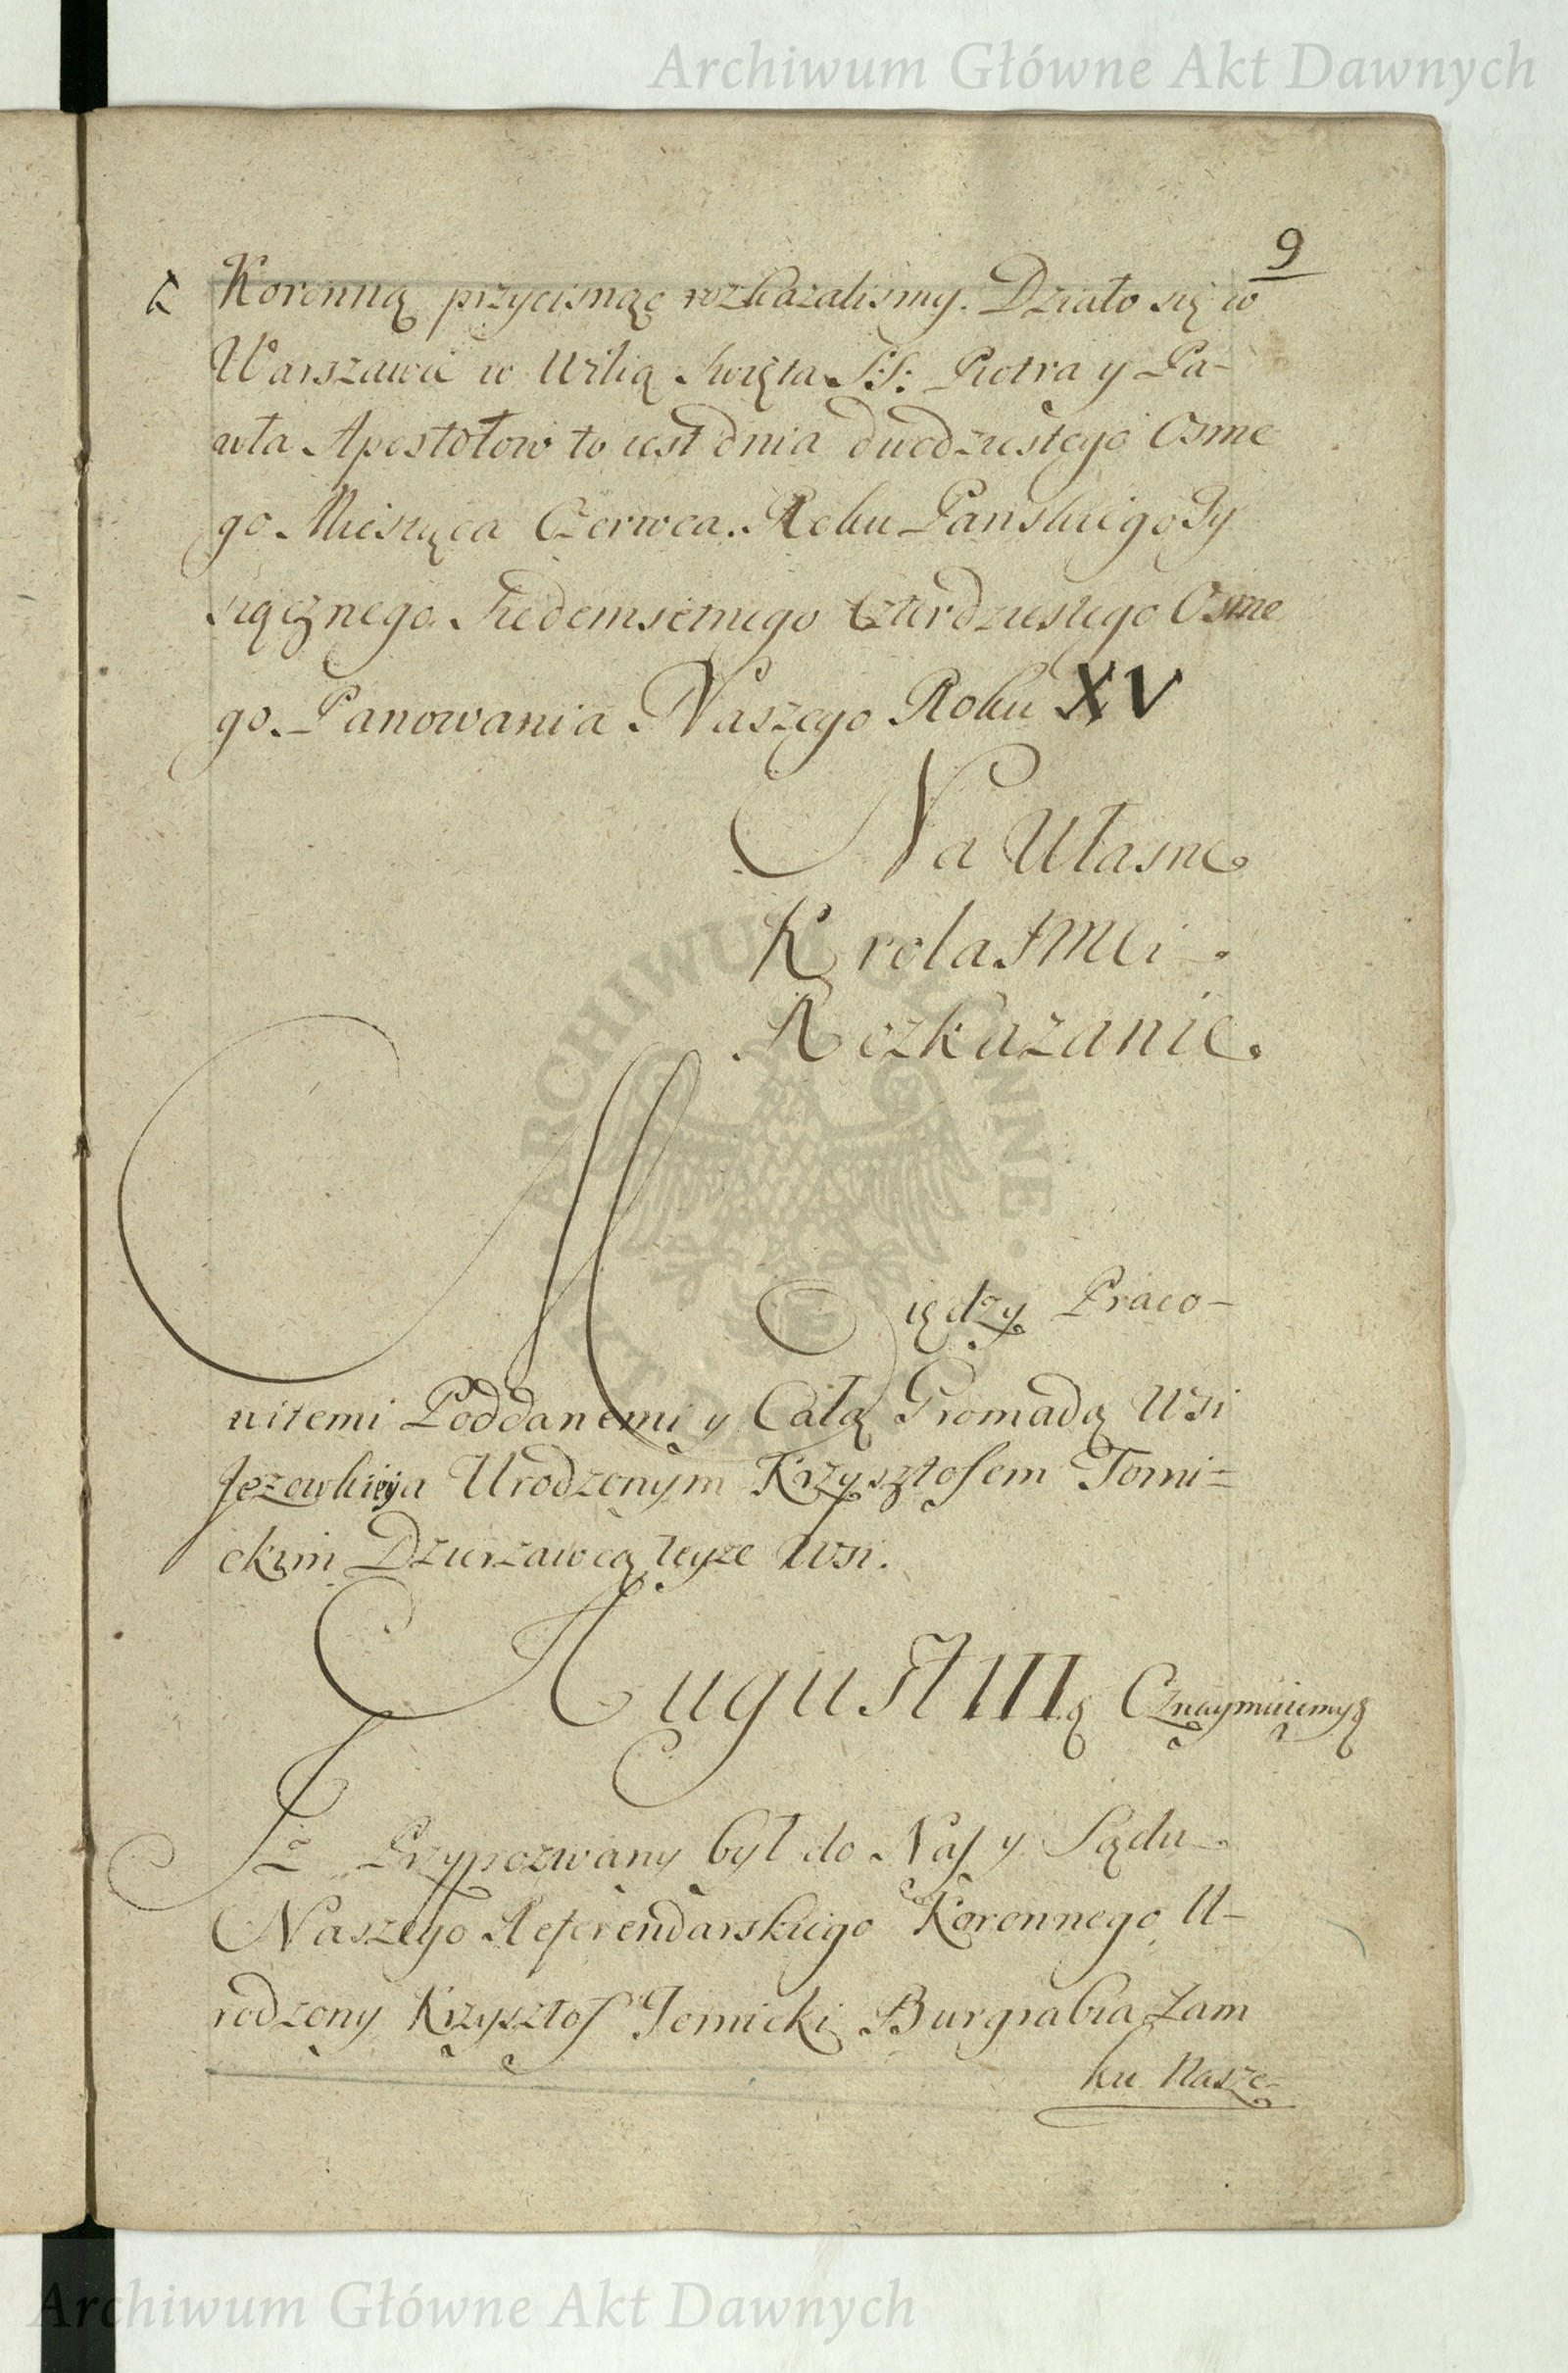 Archiwum Główne Akt Dawnych
9
Koronną przycisnąc rozkazalismy. Działo się w
Warszawie w Wilią Swięta SS: Piotra y Pa-
wła Apostołow to iest dnia dwódziestego Osme
go Miesiąca Czerwca. Roku Panskiego Ty
siącznego Siedemsetnego Czterdziestego Osme
go. Panowania Naszego Roku XV
Na Własne
Krola JMCi
Rozkazanie.
ARCHIWUM GŁÓWNE AKT DAWNYCH
Między Praco-
witemi Poddanemi y Całą Gromadą Wsi
Jezowkieyia Urodzonym Krzysztofem Tomi=
ckim Dzierzawcą teyze Wsi.
August III Oznaymuiemy
Iż Przypozwany był do Nas y Sądu
Naszego Referendarskiego Koronnego U-
rodzony Krzysztof Tomicki Burgrabia Zam
ku Nasze-
Archiwum Główne Akt Dawnych